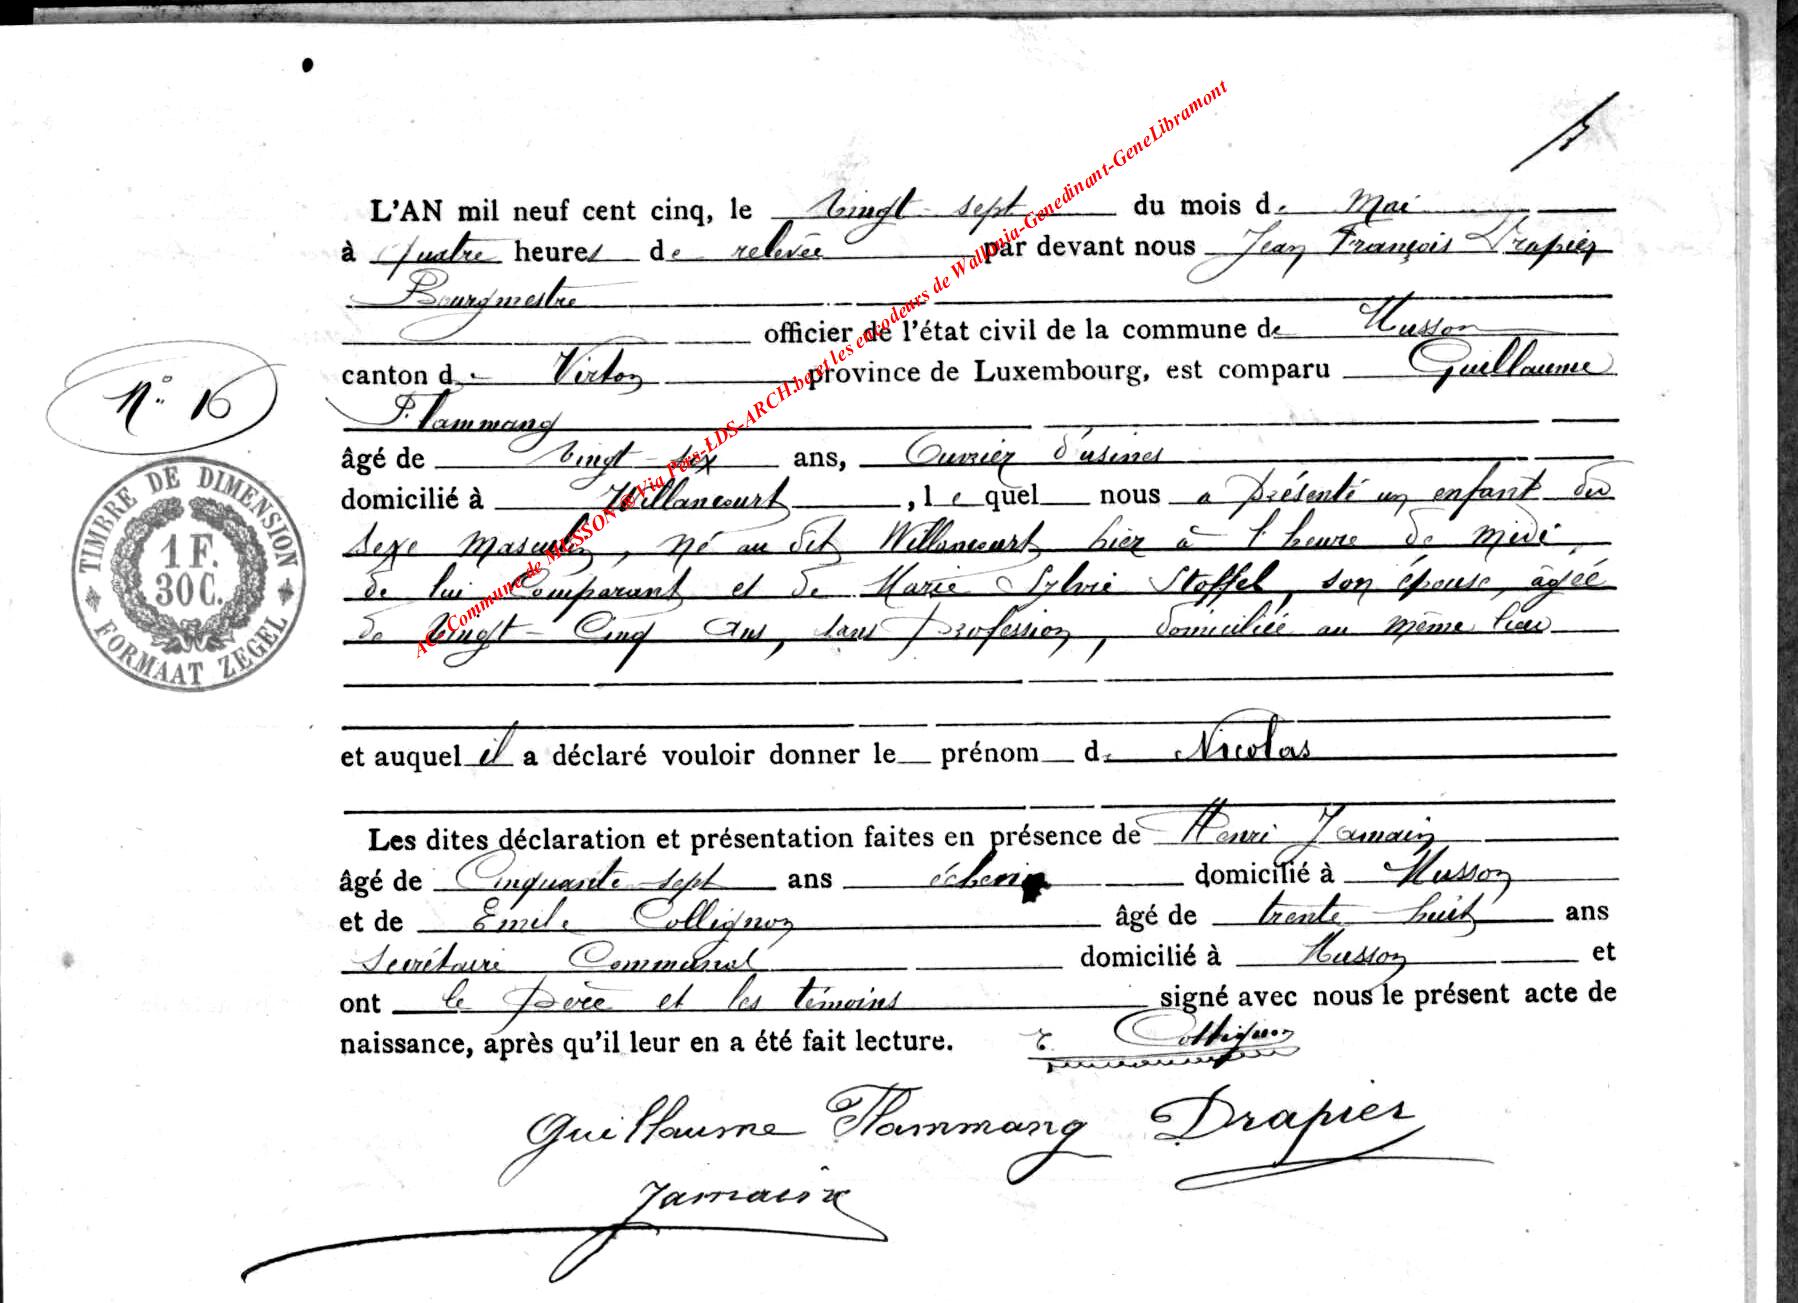 L'AN mil neuf cent cinq, le vingt-sept du mois de Mai
à quatre heures de relevée par devant nous Jean François Drapier
Bourgmestre
officier de l'état civil de la commune de Musson
canton de Virton province de Luxembourg, est comparu Guillaume
Flammang
N° 16
âgé de vingt-six ans, Ouvrier d'usines
domicilié à Willancourt, lequel nous a présenté un enfant du
sexe masculin, né au dit Willancourt hier à l'heure de midi,
de lui Comparant et de Marie Sylvie Stoffel, son épouse, âgée
de vingt-cinq ans, sans profession, domiciliée au même lieu
TIMBRE DE DIMENSION
1 F.
30 C.
FORMAAT ZEGEL
et auquel il a déclaré vouloir donner le prénom de Nicolas
Les dites déclaration et présentation faites en présence de Henri Jamain
âgé de Cinquante-sept ans échevin domicilié à Musson
et de Emile Collignon âgé de trente-huit ans
Secrétaire Communal domicilié à Musson et
ont le père et les témoins signé avec nous le présent acte de
naissance, après qu'il leur en a été fait lecture. E. Collignon
Guillaume Flammang Drapier
Jamain
AC Commune de MUSSON @ Via Pers-LDS-ARCH.be et les encodeurs de Wallonia-Genedinant-GeneLibramont